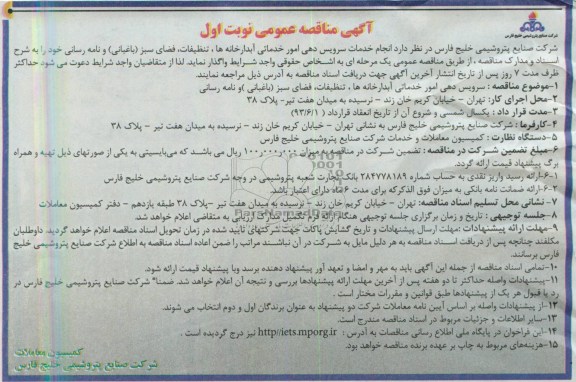 آگهی مناقصه عمومی نوبت اول
شرکت صنایع پتروشیمی خلیج فارس
شرکت صنایع پتروشیمی خلیج فارس در نظر دارد انجام خدمات سرویس دهی امور خدماتی آبدارخانه ها ، تنظیفات، فضای سبز (باغبانی) و نامه رسانی خود را به شرح
اسناد و مدارک مناقصه ، از طریق مناقصه عمومی یک مرحله ای به اشخاص حقوقی واجد شرایط واگذار نماید. لذا از متقاضیان واجد شرایط دعوت می شود حداکثر
ظرف مدت ۷ روز پس از تاریخ انتشار آخرین آگهی جهت دریافت اسناد مناقصه به آدرس ذیل مراجعه نمایند.
۱-موضوع مناقصه : سرویس دهی امور خدماتی آبدارخانه ها ، تنظیفات، فضای سبز (باغبانی )و نامه رسانی
۲-محل اجرای کار: تهران – خیابان کریم خان زند – نرسیده به میدان هفت تیر- پلاک ۳۸
۳-مدت قرار داد : یکسال شمسی و شروع آن از تاریخ انعقاد قرارداد (۹۳/۶/۱)
۴-کارفرما : شرکت صنایع پتروشیمی خلیج فارس به نشانی تهران – خیابان کریم خان زند – نرسیده به میدان هفت تیر – پلاک ۳۸
۵-دستگاه نظارت : کمیسیون معاملات و خدمات شرکت صنایع پتروشیمی خلیج فارس
۶-مبلغ تضمین شرکت در مناقصه : تضمین شرکت در مناقصه به مبلغ ۱۰۰٫۰۰۰٫۰۰۰ ریال می باشند که می‌بایستی به یکی از صورتهای ذیل تهیه و همراه
برگ پیشنهاد قیمت ارائه گردد.
۶-۱-ارائه رسید واریز نقدی به حساب شماره ۲۸۴۷۷۸۱۸۹ بانک تجارت شعبه پتروشیمی در وجه شرکت صنایع پتروشیمی خلیج فارس
۶-۲-ارائه ضمانت نامه بانکی به میزان فوق الذکرکه برای مدت ۶ ماه دارای اعتبار باشد.
۷- نشانی محل تسلیم اسناد مناقصه: تهران – خیابان کریم خان زند – نرسیده به میدان هفت تیر –پلاک ۳۸ طبقه یازدهم – دفتر کمیسیون معاملات
۸-جلسه توجیهی : تاریخ و زمان برگزاری جلسه توجیهی هنگام ارائه فرم تکمیل مدارک ارزیابی به متقاضی اعلام خواهد شد.
۹-مهلت ارائه پیشنهادات :مهلت ارسال پیشنهادات و تاریخ گشایش پاکات جهت شرکتهای تایید شده در زمان تحویل اسناد مناقصه اعلام خواهد گردید. داوطلبان
مکلفند چنانچه پس از دریافت اسناد مناقصه به هر دلیل مایل به شرکت در آن نباشند مراتب را ضمن اعاده اسناد مناقصه به اطلاع شرکت صنایع پتروشیمی خلیج
فارس برسانند.
۱۰-تمامی اسناد مناقصه از جمله این آگهی باید به مهر و امضا و تعهد آور پیشنهاد دهنده برسد وبا پیشنهاد قیمت ارائه شود.
۱۱-پیشنهادات واصله حداکثر تا دو هفته پس از آخرین مهلت ارائه پیشنهادها بررسی و نتیجه آن اعلام خواهد شد. ضمنا" شرکت صنایع پتروشیمی خلیج فارس در
رد یا قبول هر یک از پیشنهادها طبق قوانین و مقررات مختار است .
۱۲-از پیشنهادات واصله بر اساس آیین نامه معاملات شرکت دو پیشنهاد به عنوان برندگان اول و دوم انتخاب می شوند.
۱۳-سایر اطلاعات و جزئیات مربوط در اسناد مناقصه مندرج است.
۱۴-این فراخوان در پایگاه ملی اطلاع رسانی مناقصات به آدرس : http//iets.mporg.ir نیز درج گردیده است .
۱۵-هزینه‌های مربوط به چاپ بر عهده برنده مناقصه خواهد بود.
کمیسیون معاملات
شرکت صنایع پتروشیمی خلیج فارس